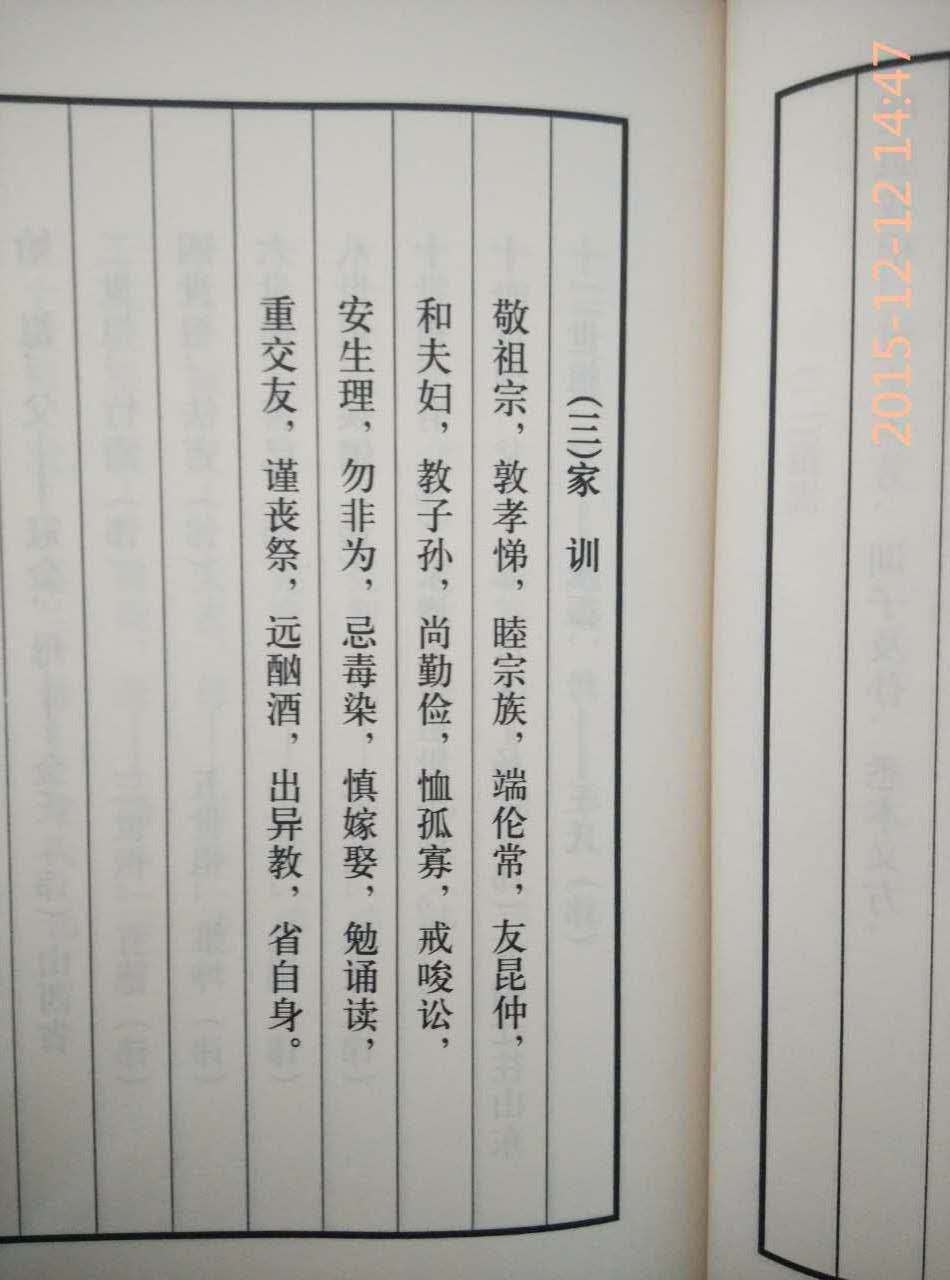 (三)家 训
敬祖宗，敦孝悌，睦宗族，端伦常，友昆仲，
和夫妇，教子孙，尚勤俭，恤孤寡，戒唆讼，
安生理，勿非为，忌毒染，慎嫁娶，勉诵读，
重交友，谨丧祭，远酗酒，出异教，省自身。
2015-12-12 14:47